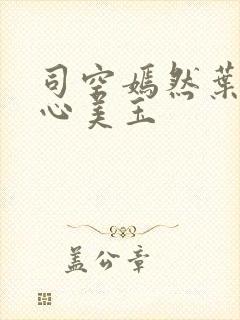 司空嫣然葉
心美玉
蓋公章